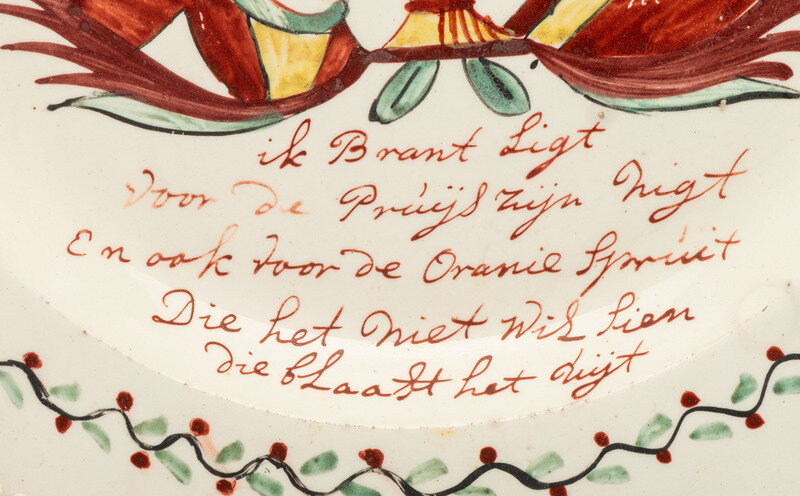 ik Brant Ligt
Voor de Pruÿs zijn Nigt
En ook voor de Oranie Spruit
Die het Niet Wil Sien
die blaast het uijt